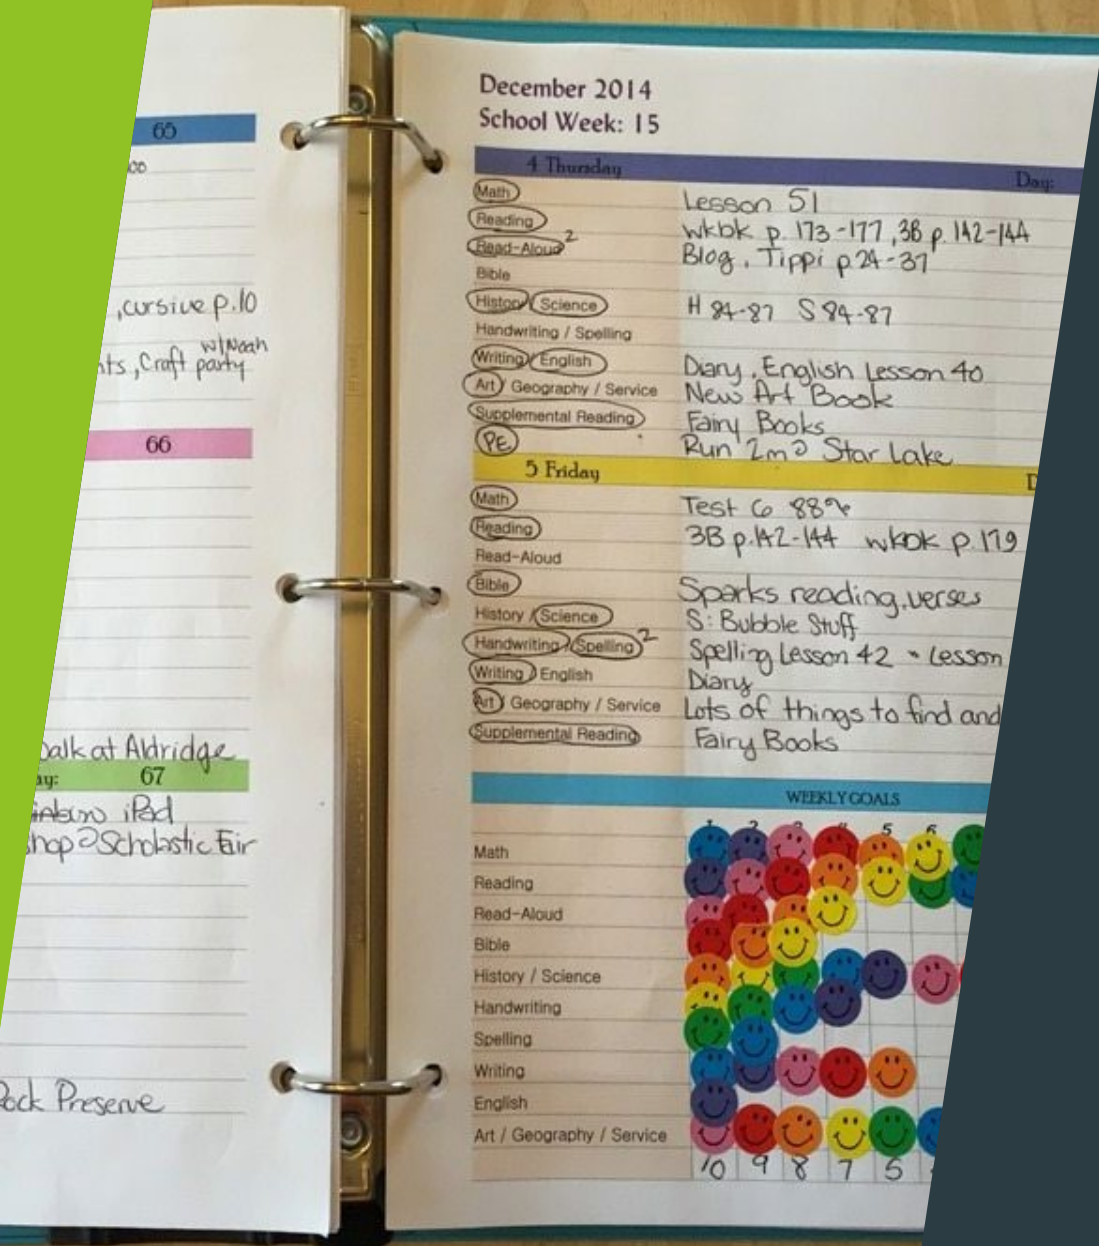 65
,cursive p.10
w/Noah
,Craft party
66
at Aldridge
67
iPad
@Scholastic Fair
Rock Preserve
December 2014
School Week: 15
4 Thursday Day:
Math Lesson 51
Reading wkbk p. 173-177, 3B p. 142-144
Read-Aloud 2 Blog, Tippi p 24-37
Bible
History / Science H 84-87 S 84-87
Handwriting / Spelling
Writing / English Diary, English Lesson 40
Art / Geography / Service New Art Book
Supplemental Reading Fairy Books
PE Run 2m @ Star Lake
5 Friday D
Math Test 6 88%
Reading 3B p.142-144 wkbk p. 179
Read-Aloud
Bible Sparks reading, verses
History / Science S: Bubble Stuff
Handwriting / Spelling 2 Spelling Lesson 42 Lesson
Writing / English Diary
Art / Geography / Service Lots of things to find and
Supplemental Reading Fairy Books
WEEKLY GOALS
1 2 3 4 5 6
Math
Reading
Read-Aloud
Bible
History / Science
Handwriting
Spelling
Writing
English
Art / Geography / Service
10 9 8 7 5